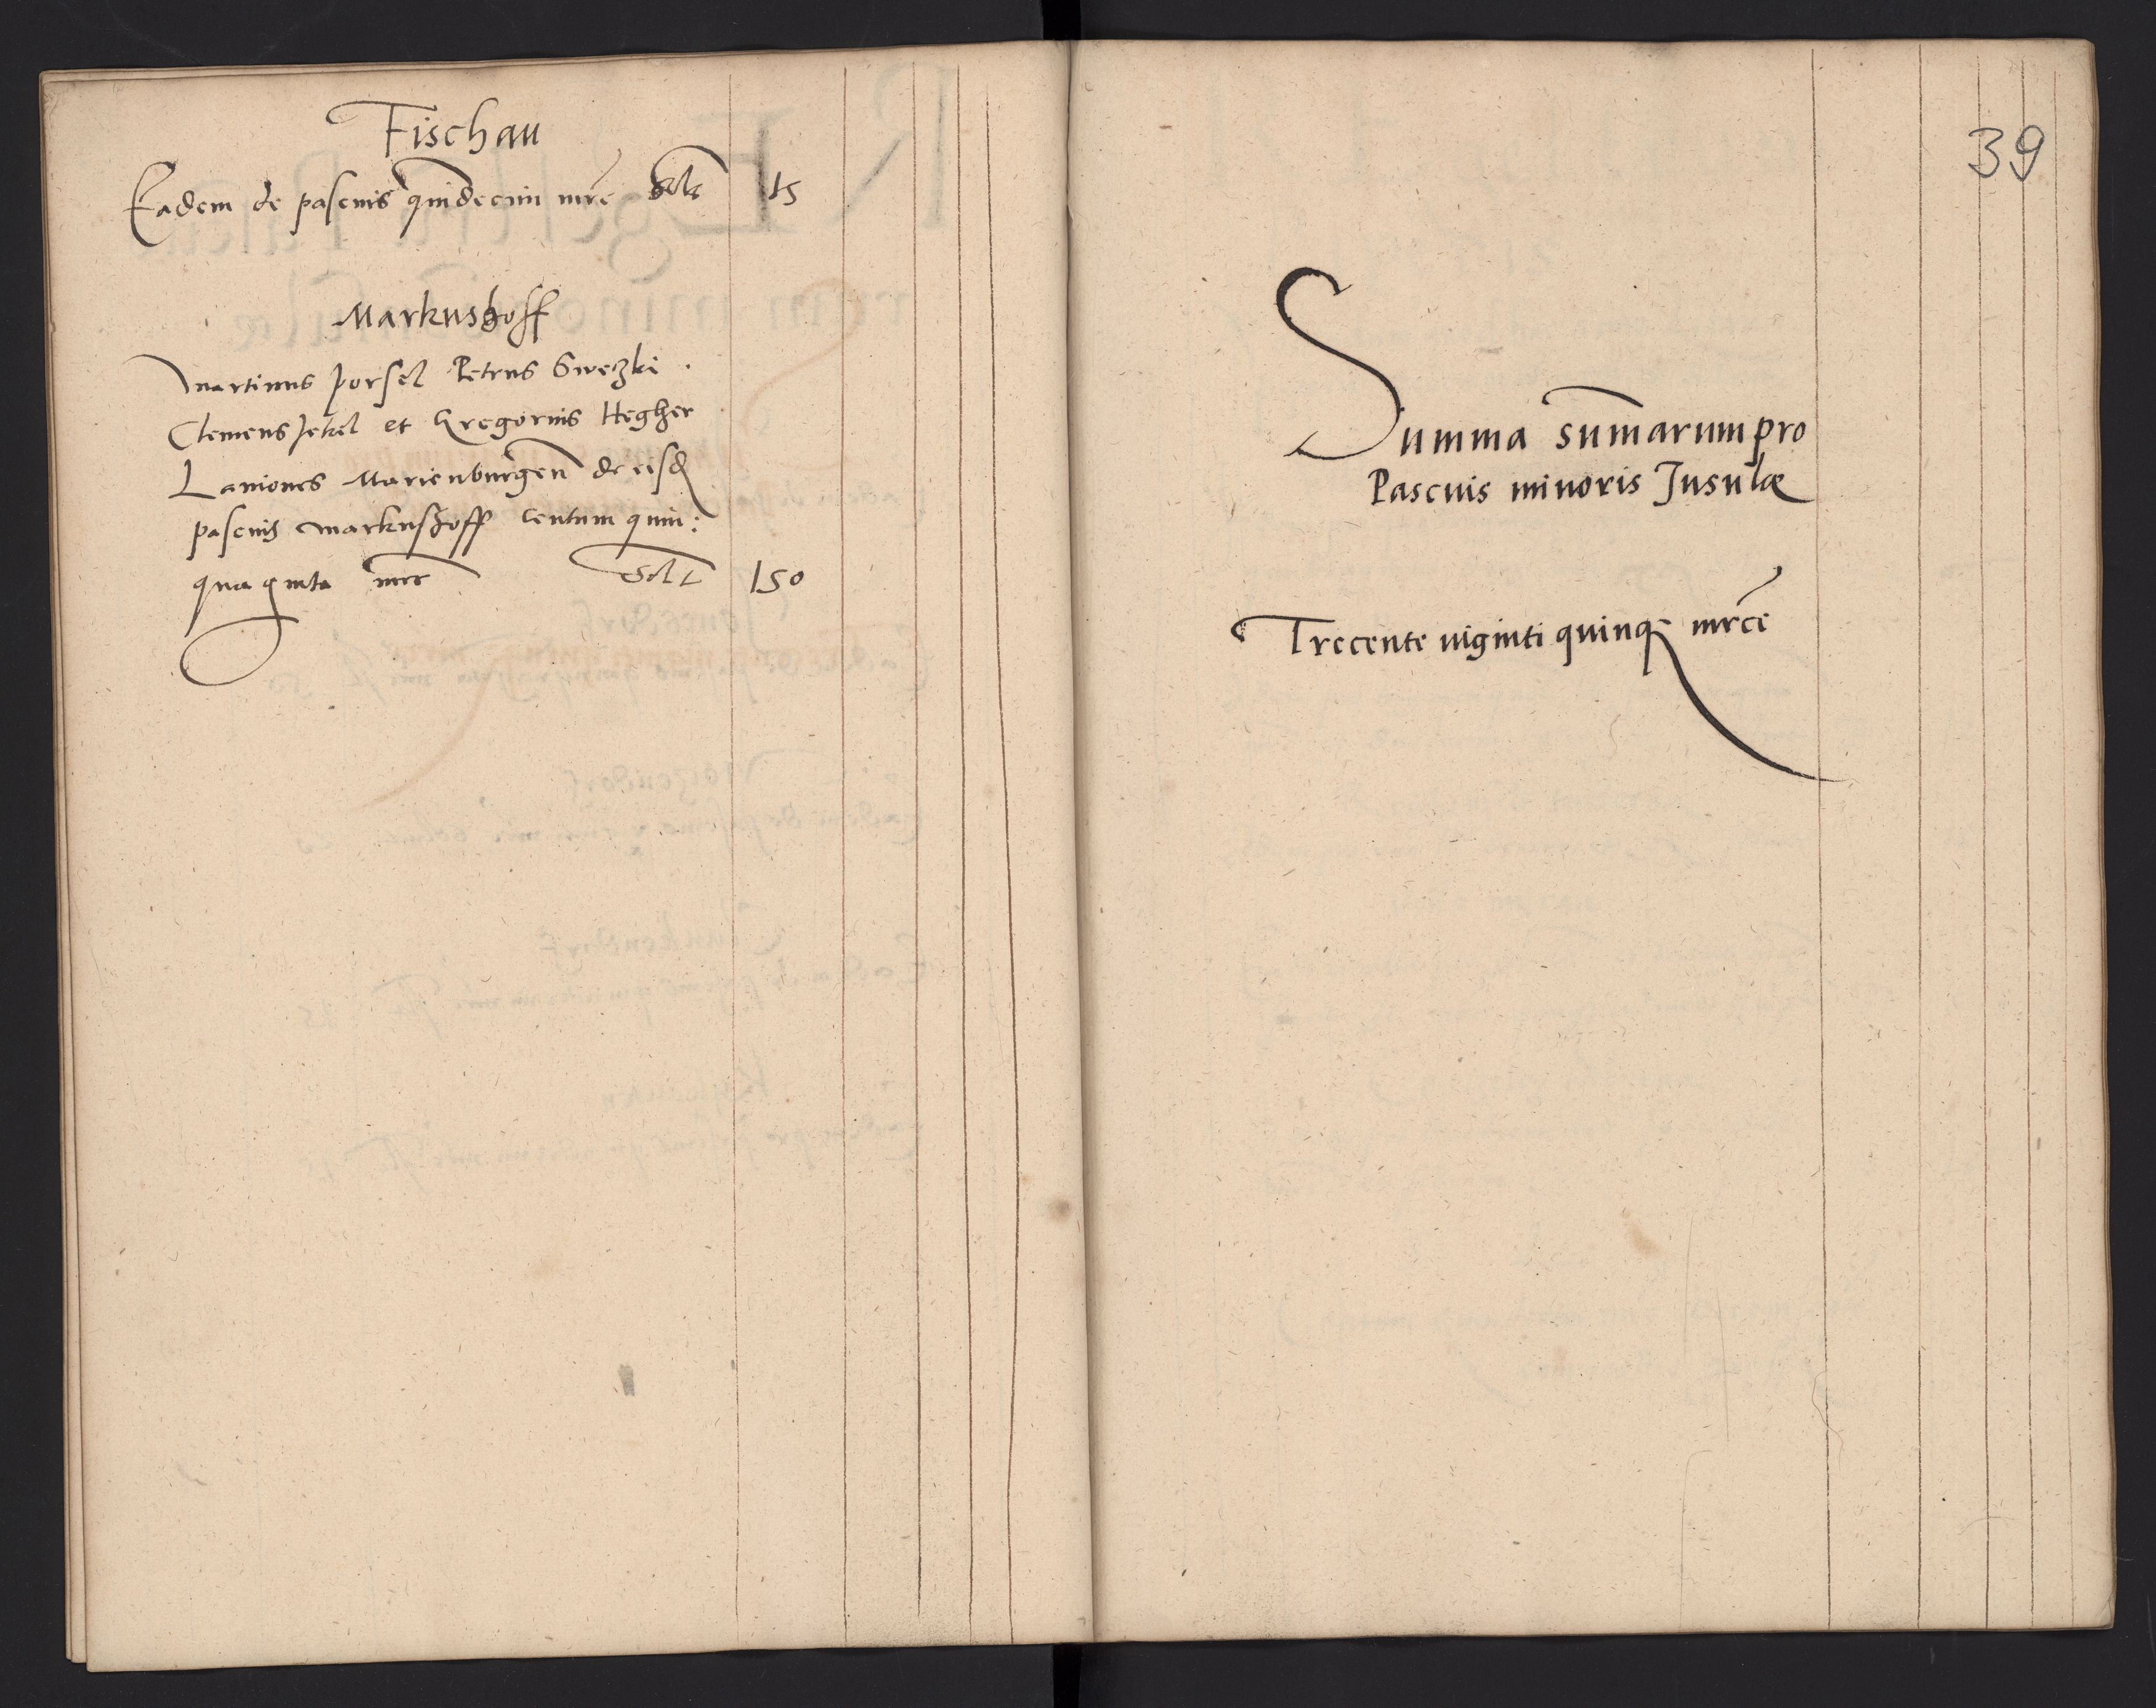 Fischau
Eadem de pascuis quindecim mrc solt 15
Markushoff
Martinus Jorsel Petrus Swezki
Clemens Jekel et Gregorius Hegher
Laniones Marienburgen de eisd
pascuis Markushoff centum quin:
quaginta mrc solt 150
39
Summa sumarum pro
Pascuis minoris Insulæ
Trecente viginti quinq mrce